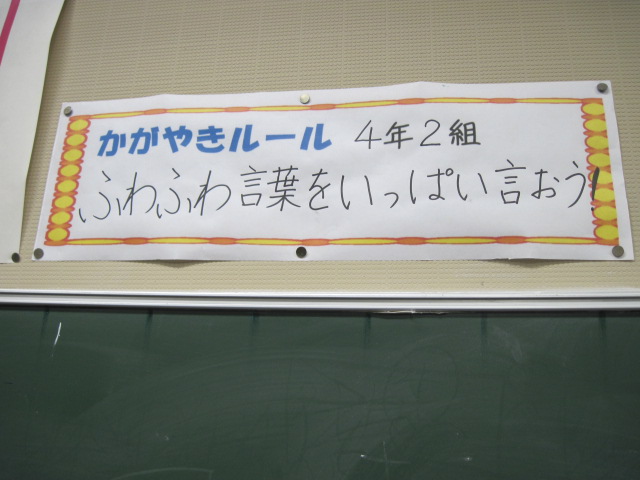 かがやきルール 4年2組
ふわふわ言葉をいっぱい言おう!